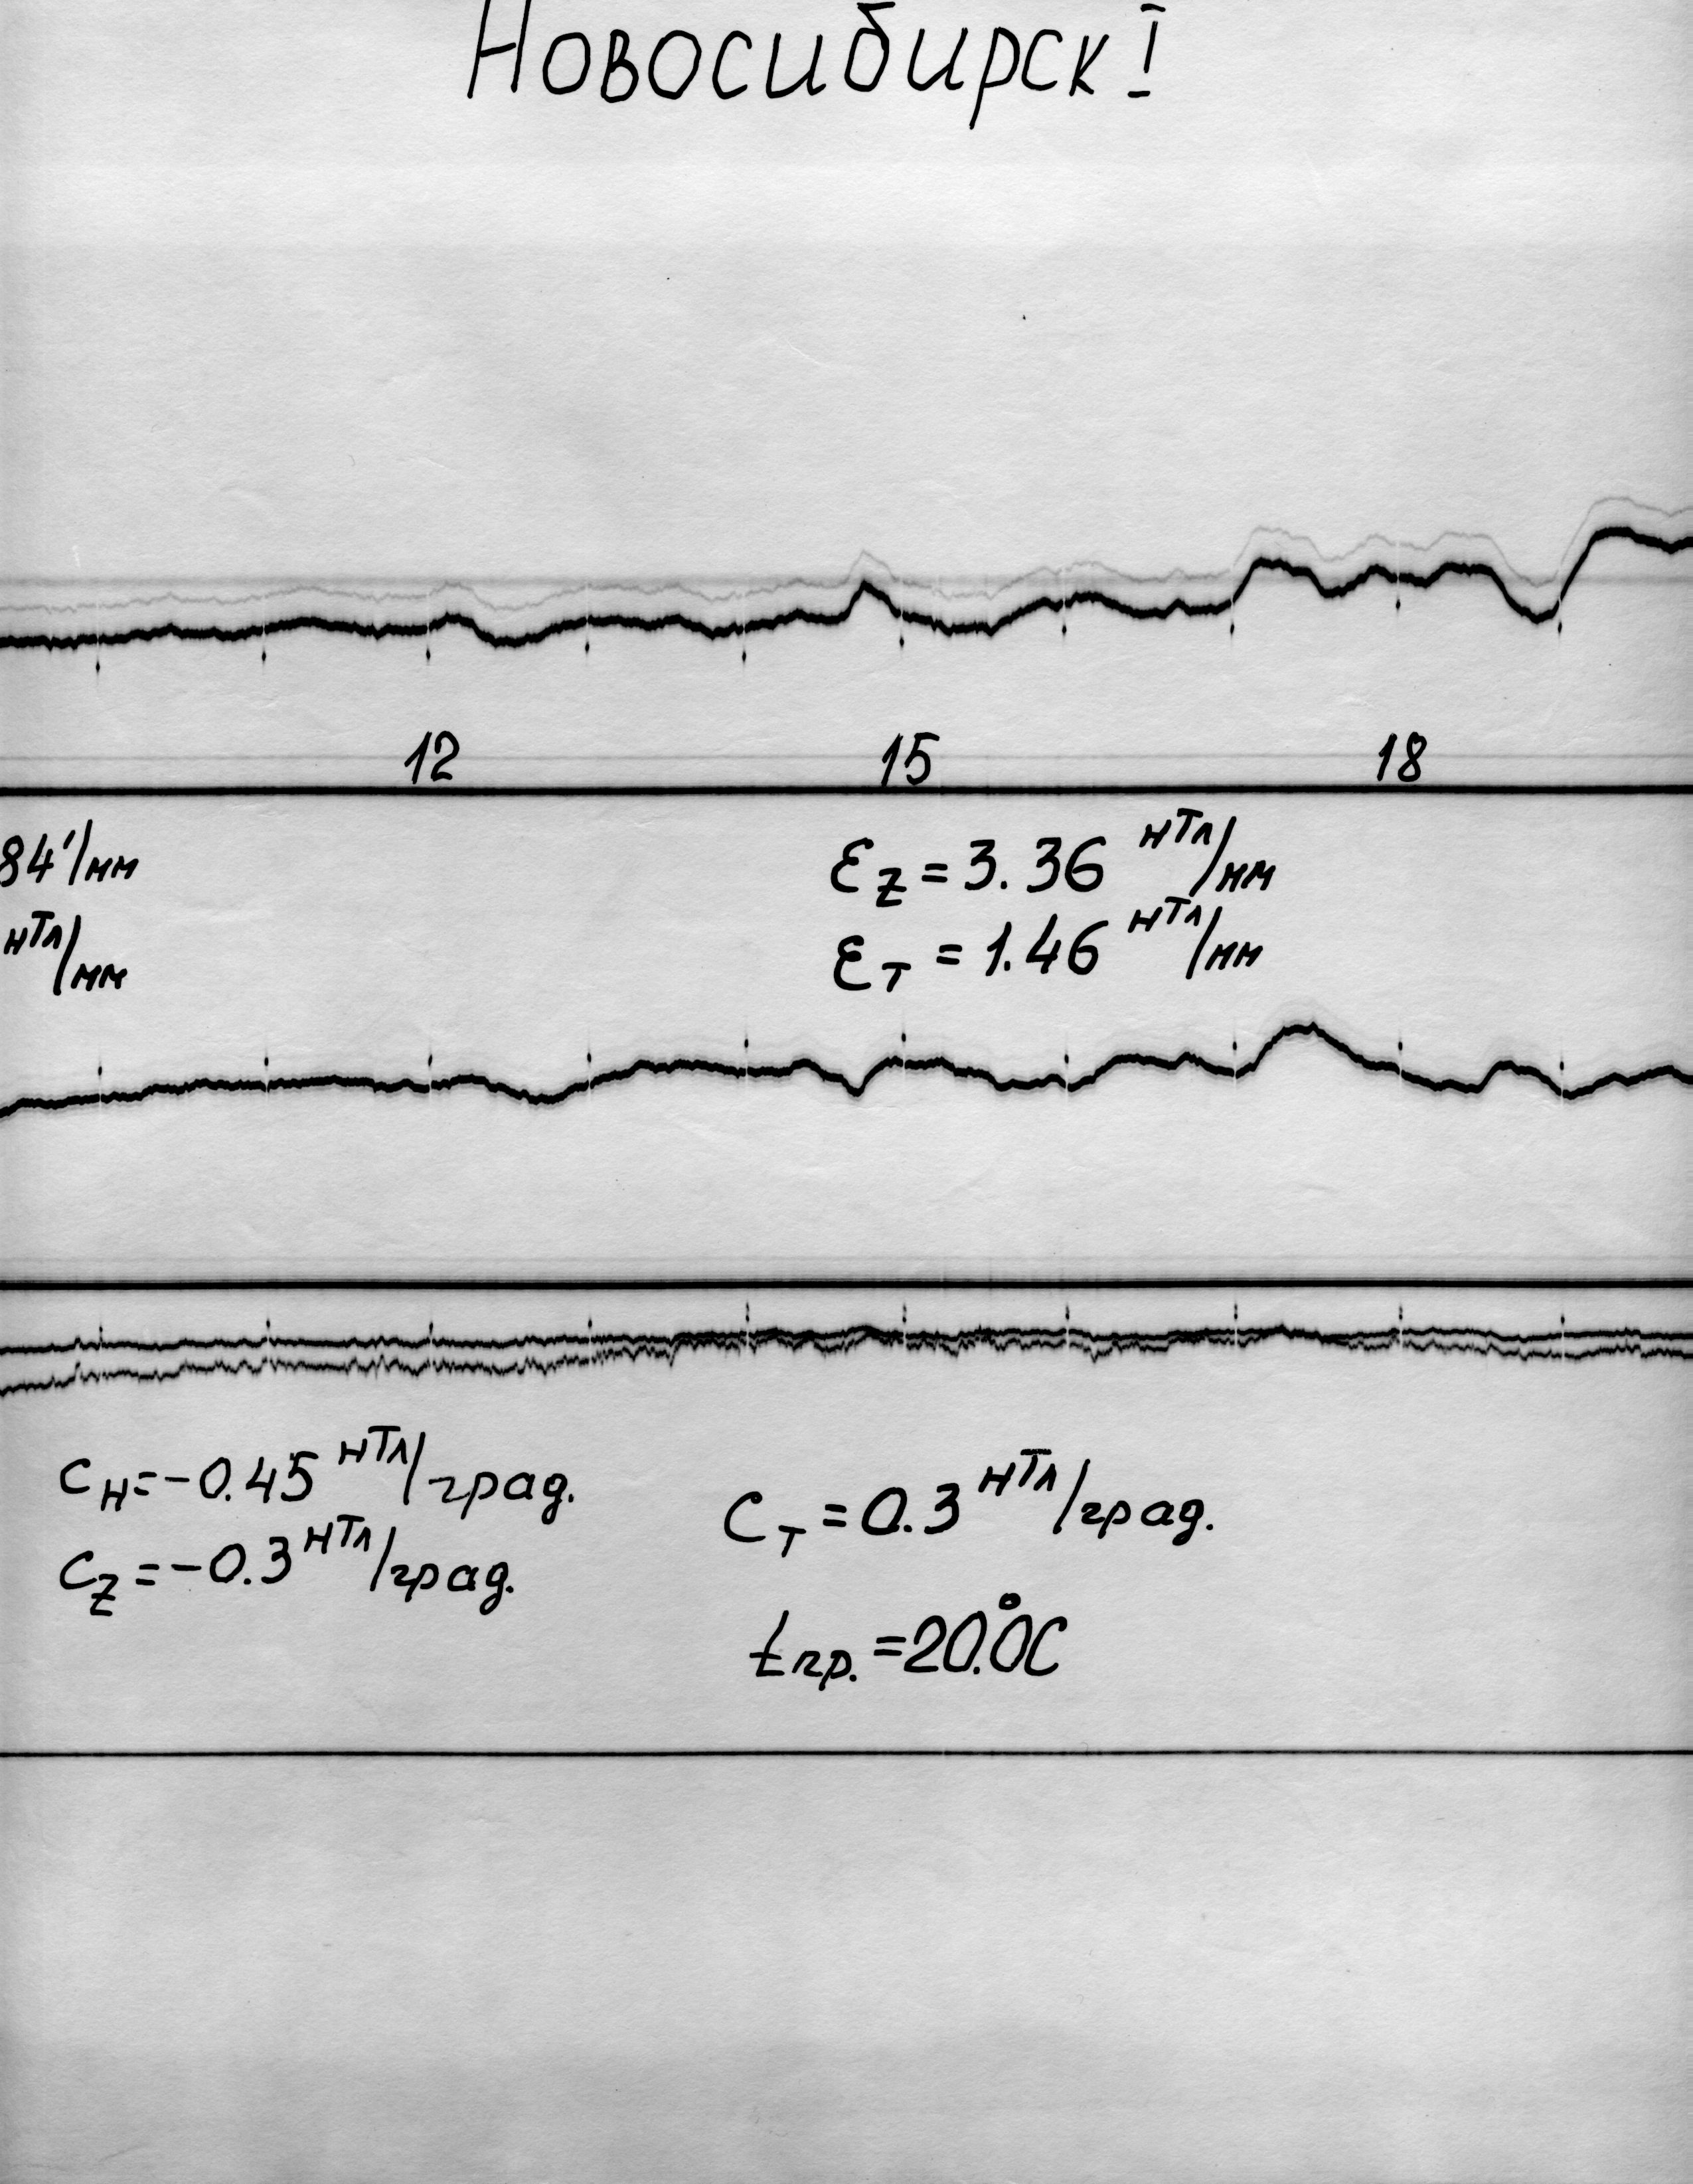 Новосибирск I
12 15 18
84'/мм
нТл/мм
Ɛz = 3.36 нТл/мм
Ɛт = 1.46 нТл/мм
Cн = -0.45 нТл/град.
Cz = -0.3 нТл/град.
Cт = 0.3 нТл/град.
tгр. = 20.0°C